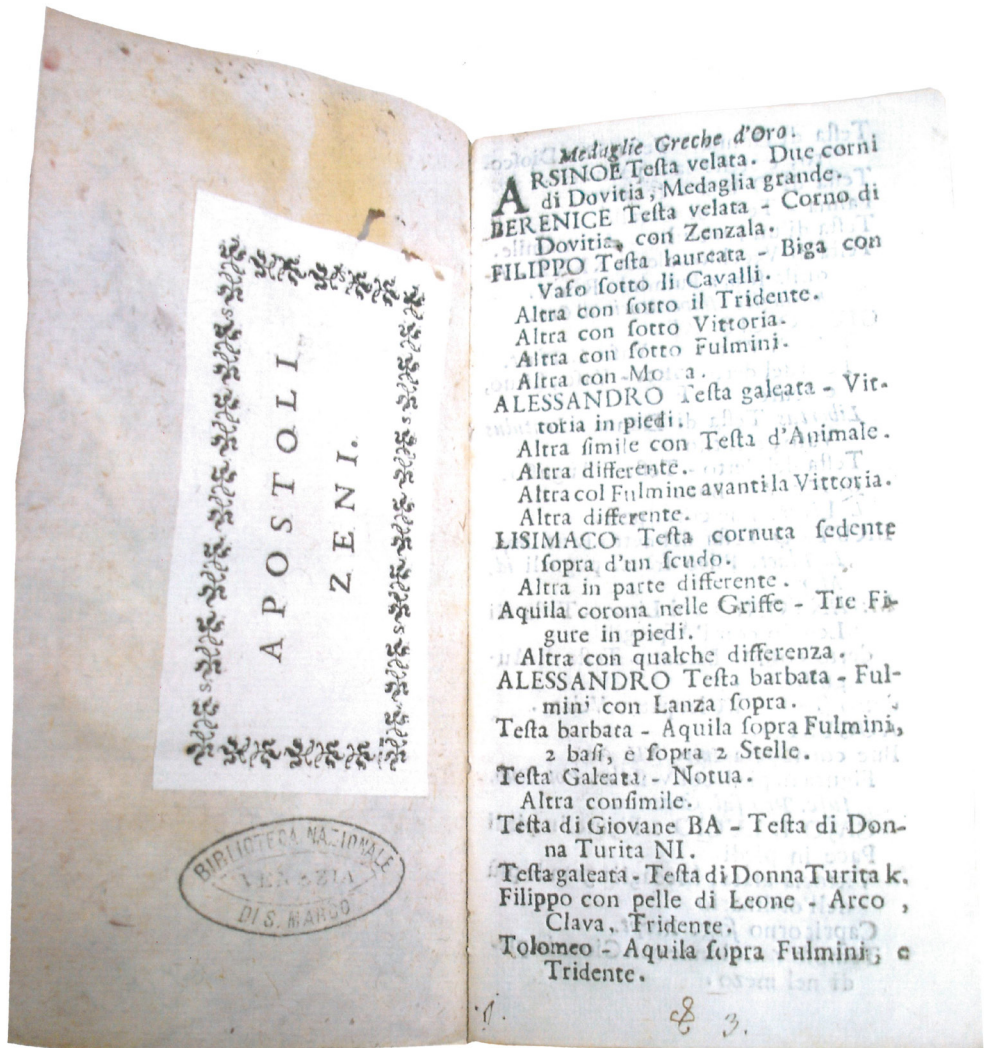 APOSTOLI
ZENI.
BIBLIOTECA NAZIONALE
VENEZIA
DI S. MARCO
Medaglie Greche d'Oro.
ARSINOE Teſta velata. Due corni
di Dovitia, Medaglia grande.
BERENICE Teſta velata - Corno di
Dovitia, con Zenzala.
FILIPPO Teſta laureata - Biga con
Vaſo ſotto li Cavalli.
Altra con ſotto il Tridente.
Altra con ſotto Vittoria.
Altra con ſotto Fulmini.
Altra con
ALESSANDRO Teſta galeata - Vit-
toria in piedi.
Altra ſimile con Teſta d'Animale.
Altra differente.
Altra col Fulmine avanti la Vittoria.
Altra differente.
LISIMACO Teſta cornuta ſedente
ſopra d'un ſcudo.
Altra in parte differente.
Aquila corona nelle Griffe - Tre Fi-
gure in piedi.
Altra con qualche differenza.
ALESSANDRO Teſta barbata - Ful-
mini con Lanza ſopra.
Teſta barbata - Aquila ſopra Fulmini,
2 baſi, e ſopra 2 Stelle.
Teſta Galeata - Notua.
Altra conſimile.
Teſta di Giovane BA - Teſta di Don-
na Turita NI.
Teſta galeata - Teſta di Donna Turita k.
Filippo con pelle di Leone - Arco,
Clava, Tridente.
Tolomeo - Aquila ſopra Fulmini, e
Tridente.
3.